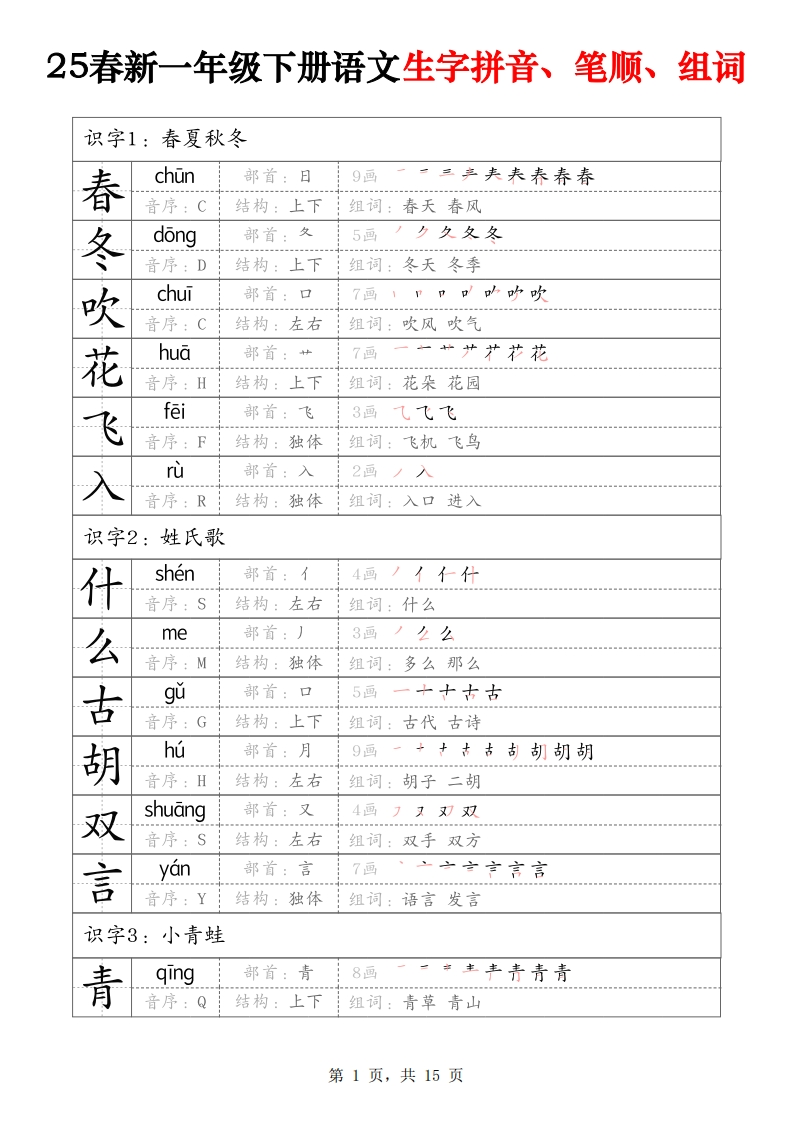 25春新一年级下册语文生字拼音、笔顺、组词
识字1：春夏秋冬
春 chūn 部首：日 9画
音序：C 结构：上下 组词：春天 春风
冬 dōng 部首：夂 5画
音序：D 结构：上下 组词：冬天 冬季
吹 chuī 部首：口 7画
音序：C 结构：左右 组词：吹风 吹气
花 huā 部首：艹 7画
音序：H 结构：上下 组词：花朵 花园
飞 fēi 部首：飞 3画
音序：F 结构：独体 组词：飞机 飞鸟
入 rù 部首：入 2画
音序：R 结构：独体 组词：入口 进入
识字2：姓氏歌
什 shén 部首：亻 4画
音序：S 结构：左右 组词：什么
么 me 部首：丿 3画
音序：M 结构：独体 组词：多么 那么
古 gǔ 部首：口 5画
音序：G 结构：上下 组词：古代 古诗
胡 hú 部首：月 9画
音序：H 结构：左右 组词：胡子 二胡
双 shuāng 部首：又 4画
音序：S 结构：左右 组词：双手 双方
言 yán 部首：言 7画
音序：Y 结构：独体 组词：语言 发言
识字3：小青蛙
青 qīng 部首：青 8画
音序：Q 结构：上下 组词：青草 青山
第 1 页，共 15 页